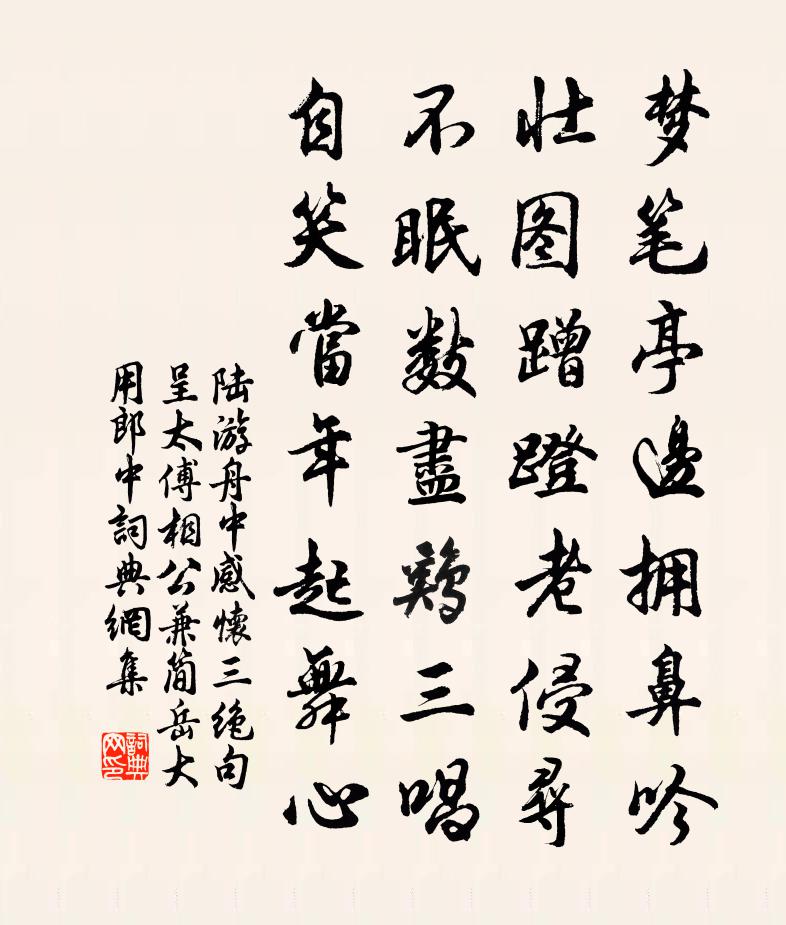 梦笔亭邊拥鼻吟
壮图蹭蹬老侵尋
不眠数盡鷄三唱
自笑當年起舞心
陆游舟中感懷三绝句
呈太傅相公兼简岳大
用郎中詞典網集
詞典网印